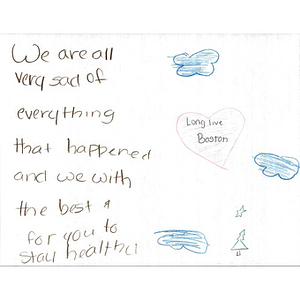 We are all
very sad of
everything
that happened
and we with
the best
for you to
stay healthy
Long live
Boston